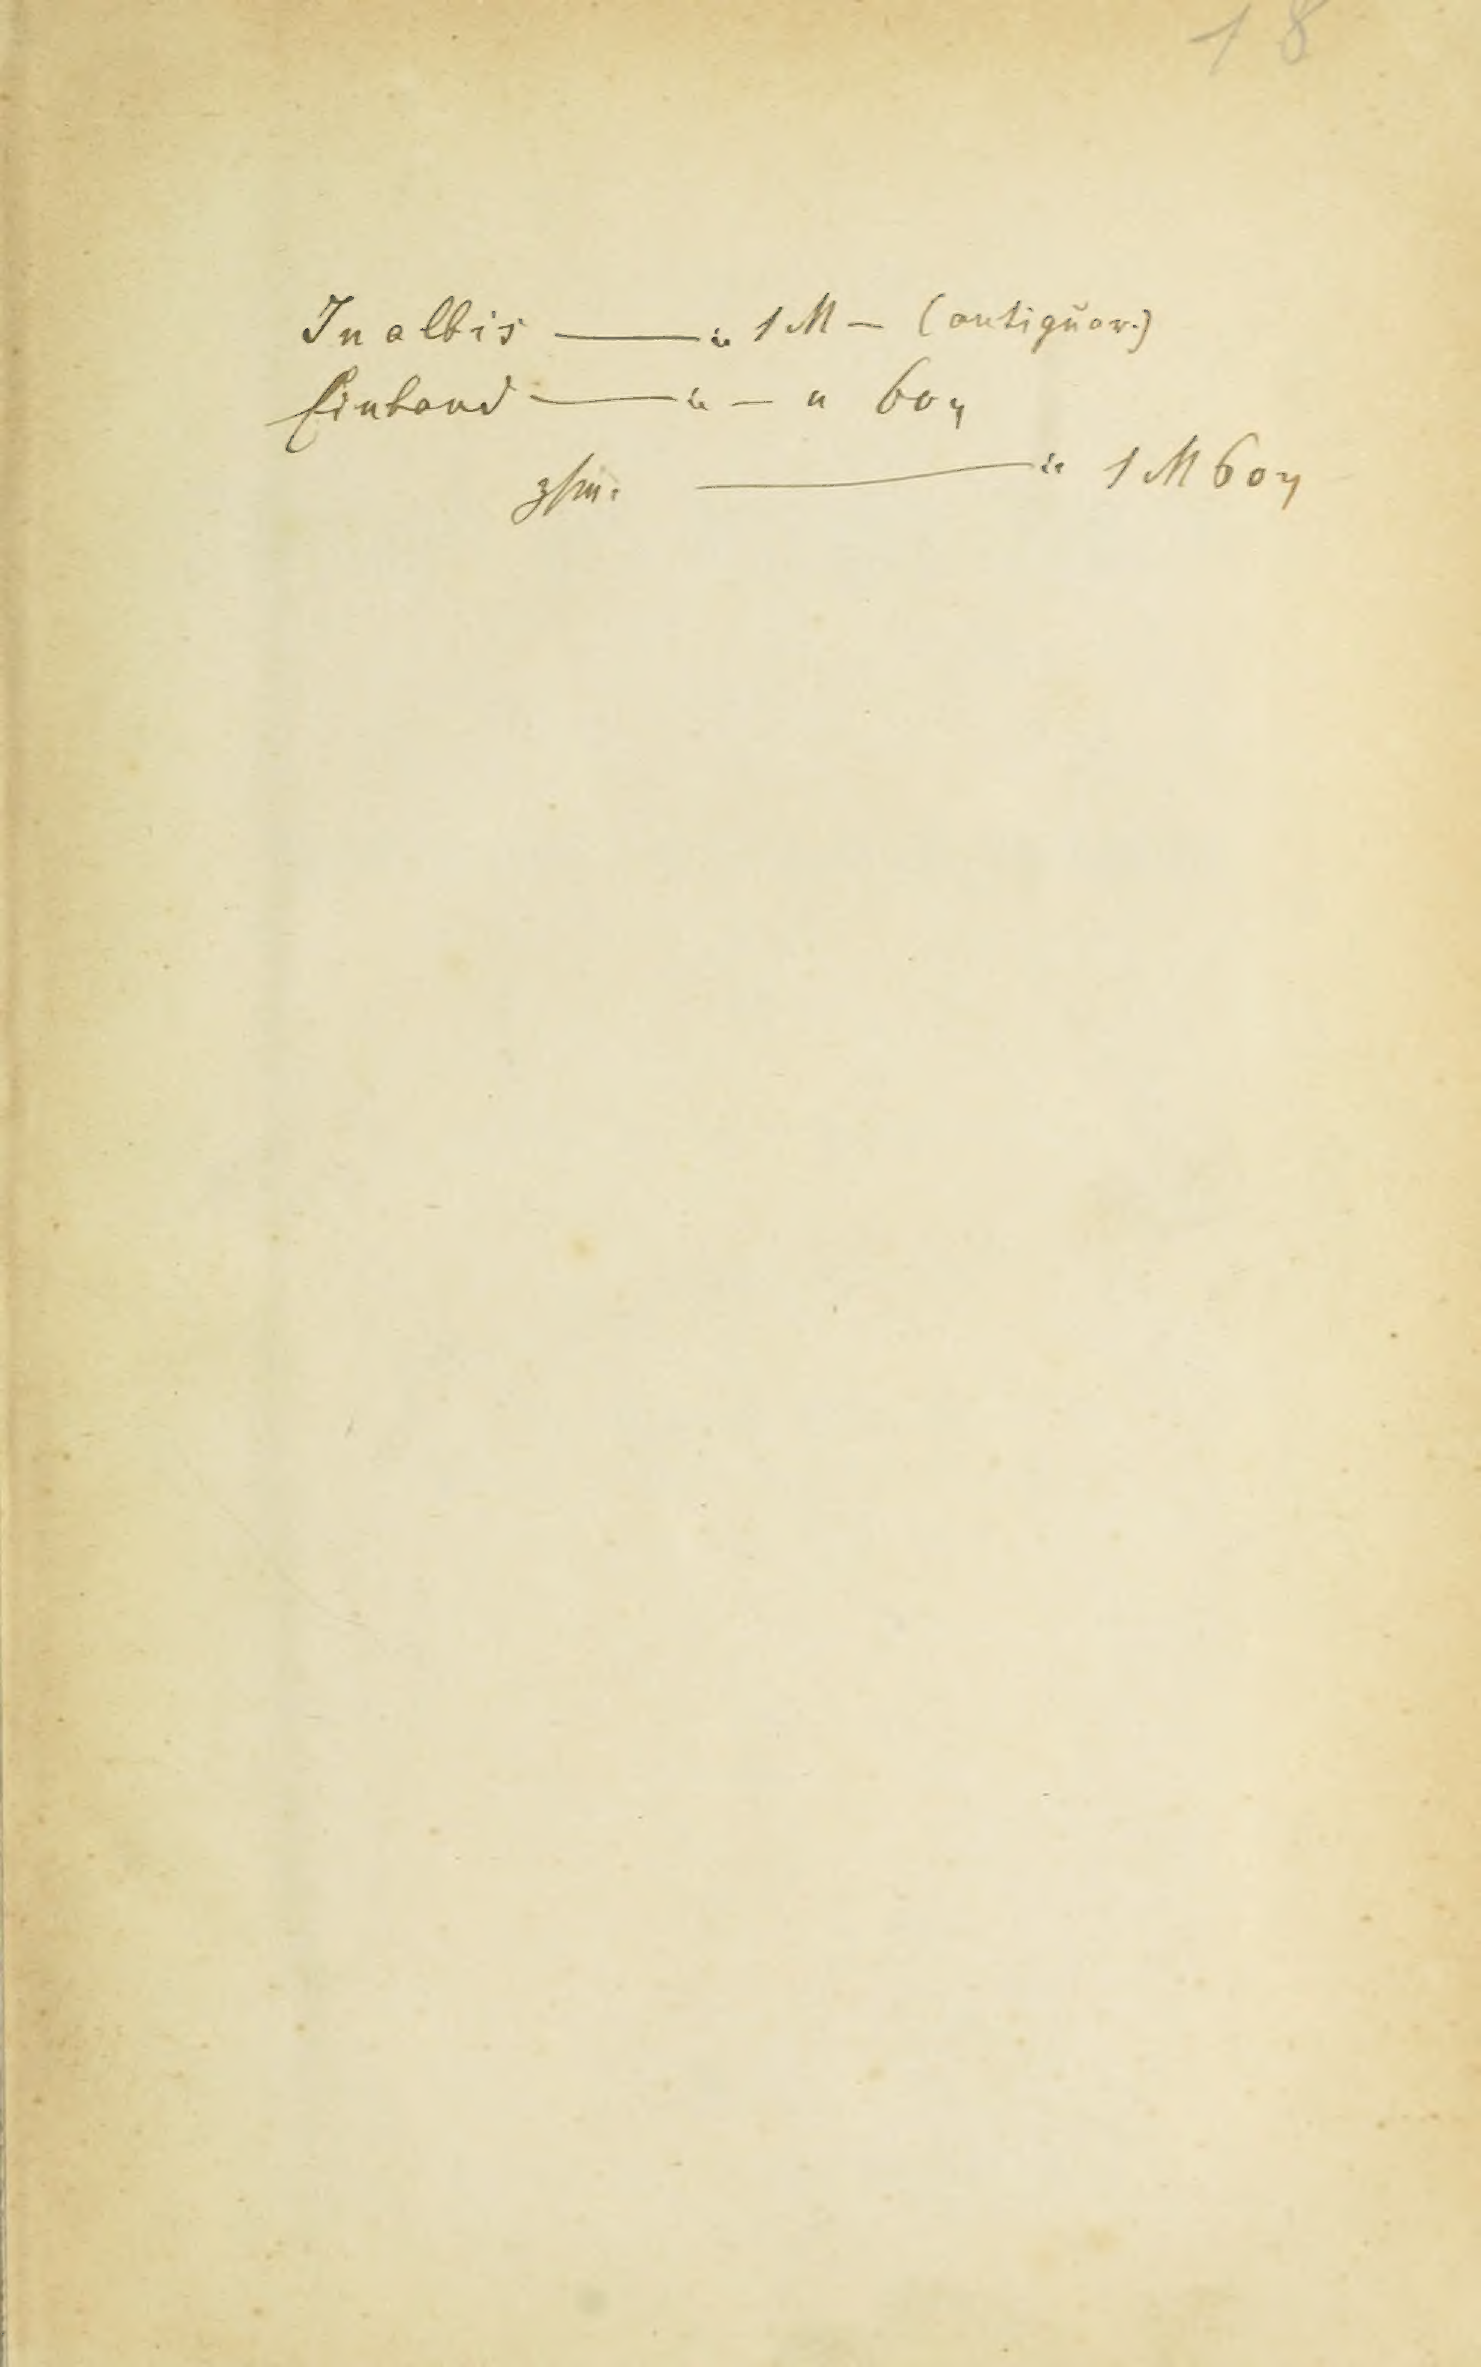 18
In albis — „ 1 M — (antiquar.)
Einband — „ — „ 60 ₰
zſm. — „ 1 M 60 ₰